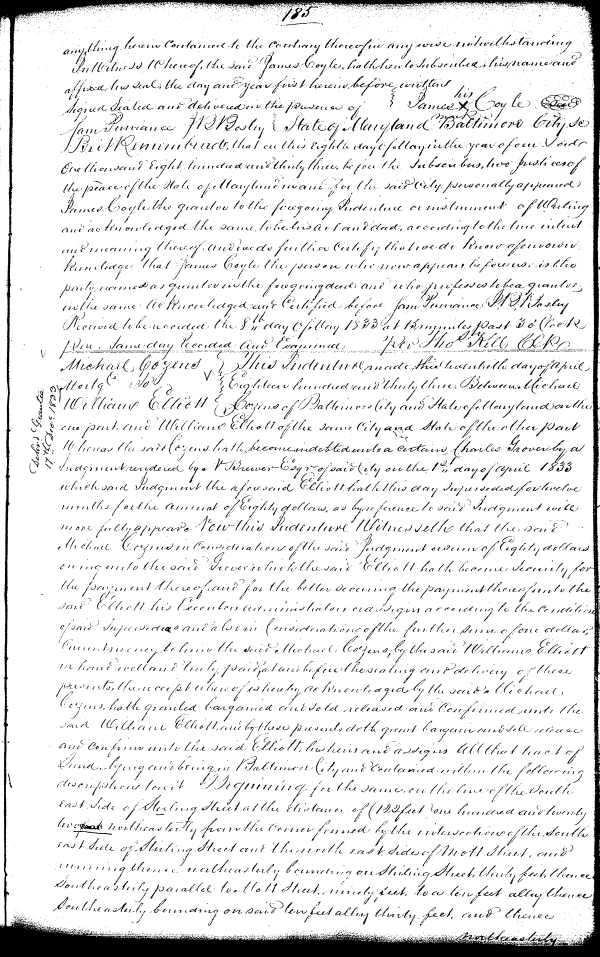 185
any thing herein contained to the contrary thereof in any wise notwithstanding
In Witness Whereof the said James Coyle, hath hereto subscribed his name and
affixed his seal the day and year first herein before written
Signed Sealed and delivered in the presence of } James his X mark Coyle Seal
Sam Purviance W B Bosley { State of Maryland Baltimore City Sc
Be it Remembered, that on this Eighth day of May in the year of our Lord
One thousand and Eight hundred and thirty three, before the Subscribers, two Justices of
the peace of the State of Maryland in and for the said City, personally appeared
James Coyle the grantor to the foregoing Indenture or instrument of Writing
and acknowledged the same to be his Act and deed, according to the true intent
and meaning thereof. And we do further Certify that we do know of our own
Knowledge that James Coyle the person who now appears before us, is the
party named as grantor in the foregoing deed and who professes to be a grantor
in the same Acknowledged and Certified before Sam Purviance W B Bosley
Received to be recorded the 8th day of May 1833 at 12 minutes past 3 O'Clock
pm. Same day Recorded and Examined per Thos Kell Clk
Michael Cozens { This Indenture made this twentieth day of April
Mortge To { Eighteen hundred and thirty three Between Michael
William Elliott { Cozens of Baltimore City and State of Maryland on the
one part and William Elliott of the same City and State of the other part
Whereas the said Cozens hath become indebted unto a certain Charles Grover by a
Judgment rendered by N Brewer Esqr of said City on the 1st day of April 1833
which said Judgment the aforesaid Elliott hath this day Superseded for twelve
months for the amount of Eighty dollars, as by reference to said Judgment will
more fully appear Now this Indenture Witnesseth that the said
Michael Cozens in Consideration of the said Judgment or sum of Eighty dollars
owing unto the said Grover which the said Elliott hath become Security for
the payment thereof, and for the better securing the payment thereof unto the
said Elliott his Executors Administrators or assigns according to the Condition
of said Supersedeas and also in Consideration of the further sum of one dollar,
Current money to him the said Michael Cozens, by the said William Elliott
in hand well and truly paid, at and before the sealing and delivery of these
presents, the receipt whereof is hereby acknowledged by the said Michael
Cozens, hath granted bargained and sold released and Confirmed unto the
said William Elliott, and by these presents doth grant bargain and sell release
and confirm unto the said Elliott, his heirs and assigns All that tract of
Land lying and being in Baltimore City and Contained within the following
descriptions to wit Beginning for the same on the line of the South
east side of Sterling Street at the distance of (122 feet) one hundred and twenty
two northeasterly from the Corner formed by the intersection of the South
east Side of Sterling Street and the north east Side of Mott Street, and
running thence northeasterly bounding on Stirling Street thirty feet, thence
Southeasterly parallel to Mott Street, ninety feet, to a ten feet alley thence
Southeasterly bounding on said ten feet alley thirty feet, and thence
northwesterly
Deld Grantee
17th Decr 1833